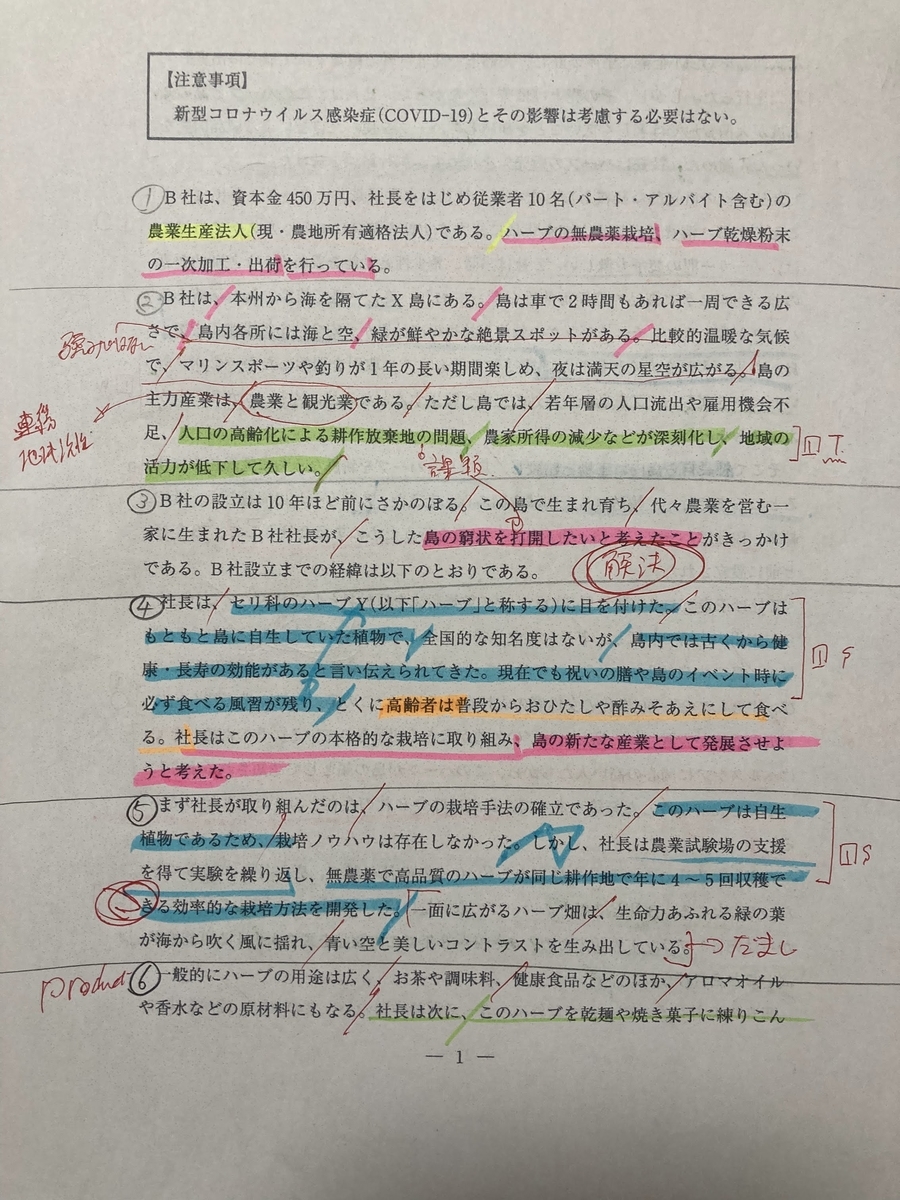 【注意事項】
新型コロナウイルス感染症(COVID-19)とその影響は考慮する必要はない。
① B社は、資本金450万円、社長をはじめ従業者10名(パート・アルバイト含む)の
農業生産法人(現・農地所有適格法人)である。ハーブの無農薬栽培、ハーブ乾燥粉末
の一次加工・出荷を行っている。
② B社は、本州から海を隔てたX島にある。島は車で2時間もあれば一周できる広
さで、島内各所には海と空、緑が鮮やかな絶景スポットがある。比較的温暖な気候
で、マリンスポーツや釣りが1年の長い期間楽しめ、夜は満天の星空が広がる。島の
主力産業は、農業と観光業である。ただし島では、若年層の人口流出や雇用機会不
足、人口の高齢化による耕作放棄地の問題、農家所得の減少などが深刻化し、地域の
① T
活力が低下して久しい。
課題
③ B社の設立は10年ほど前にさかのぼる。この島で生まれ育ち、代々農業を営む一
家に生まれたB社社長が、こうした島の窮状を打開したいと考えたことがきっかけ
である。B社設立までの経緯は以下のとおりである。
解決
④ 社長は、セリ科のハーブY(以下「ハーブ」と称する)に目を付けた。このハーブは
もともと島に自生していた植物で、全国的な知名度はないが、島内では古くから健
① S
康・長寿の効能があると言い伝えられてきた。現在でも祝いの膳や島のイベント時に
必ず食べる風習が残り、とくに高齢者は普段からおひたしや酢みそあえにして食べ
る。社長はこのハーブの本格的な栽培に取り組み、島の新たな産業として発展させよ
うと考えた。
⑤ まず社長が取り組んだのは、ハーブの栽培手法の確立であった。このハーブは自生
植物であるため、栽培ノウハウは存在しなかった。しかし、社長は農業試験場の支援
① S
を得て実験を繰り返し、無農薬で高品質のハーブが同じ耕作地で年に4〜5回収穫で
きる効率的な栽培方法を開発した。一面に広がるハーブ畑は、生命力あふれる緑の葉
が海から吹く風に揺れ、青い空と美しいコントラストを生み出している。
だまし
⑥ 一般的にハーブの用途は広く、お茶や調味料、健康食品などのほか、アロマオイル
や香水などの原材料にもなる。社長は次に、このハーブを乾麺や焼き菓子に練りこん
— 1 —